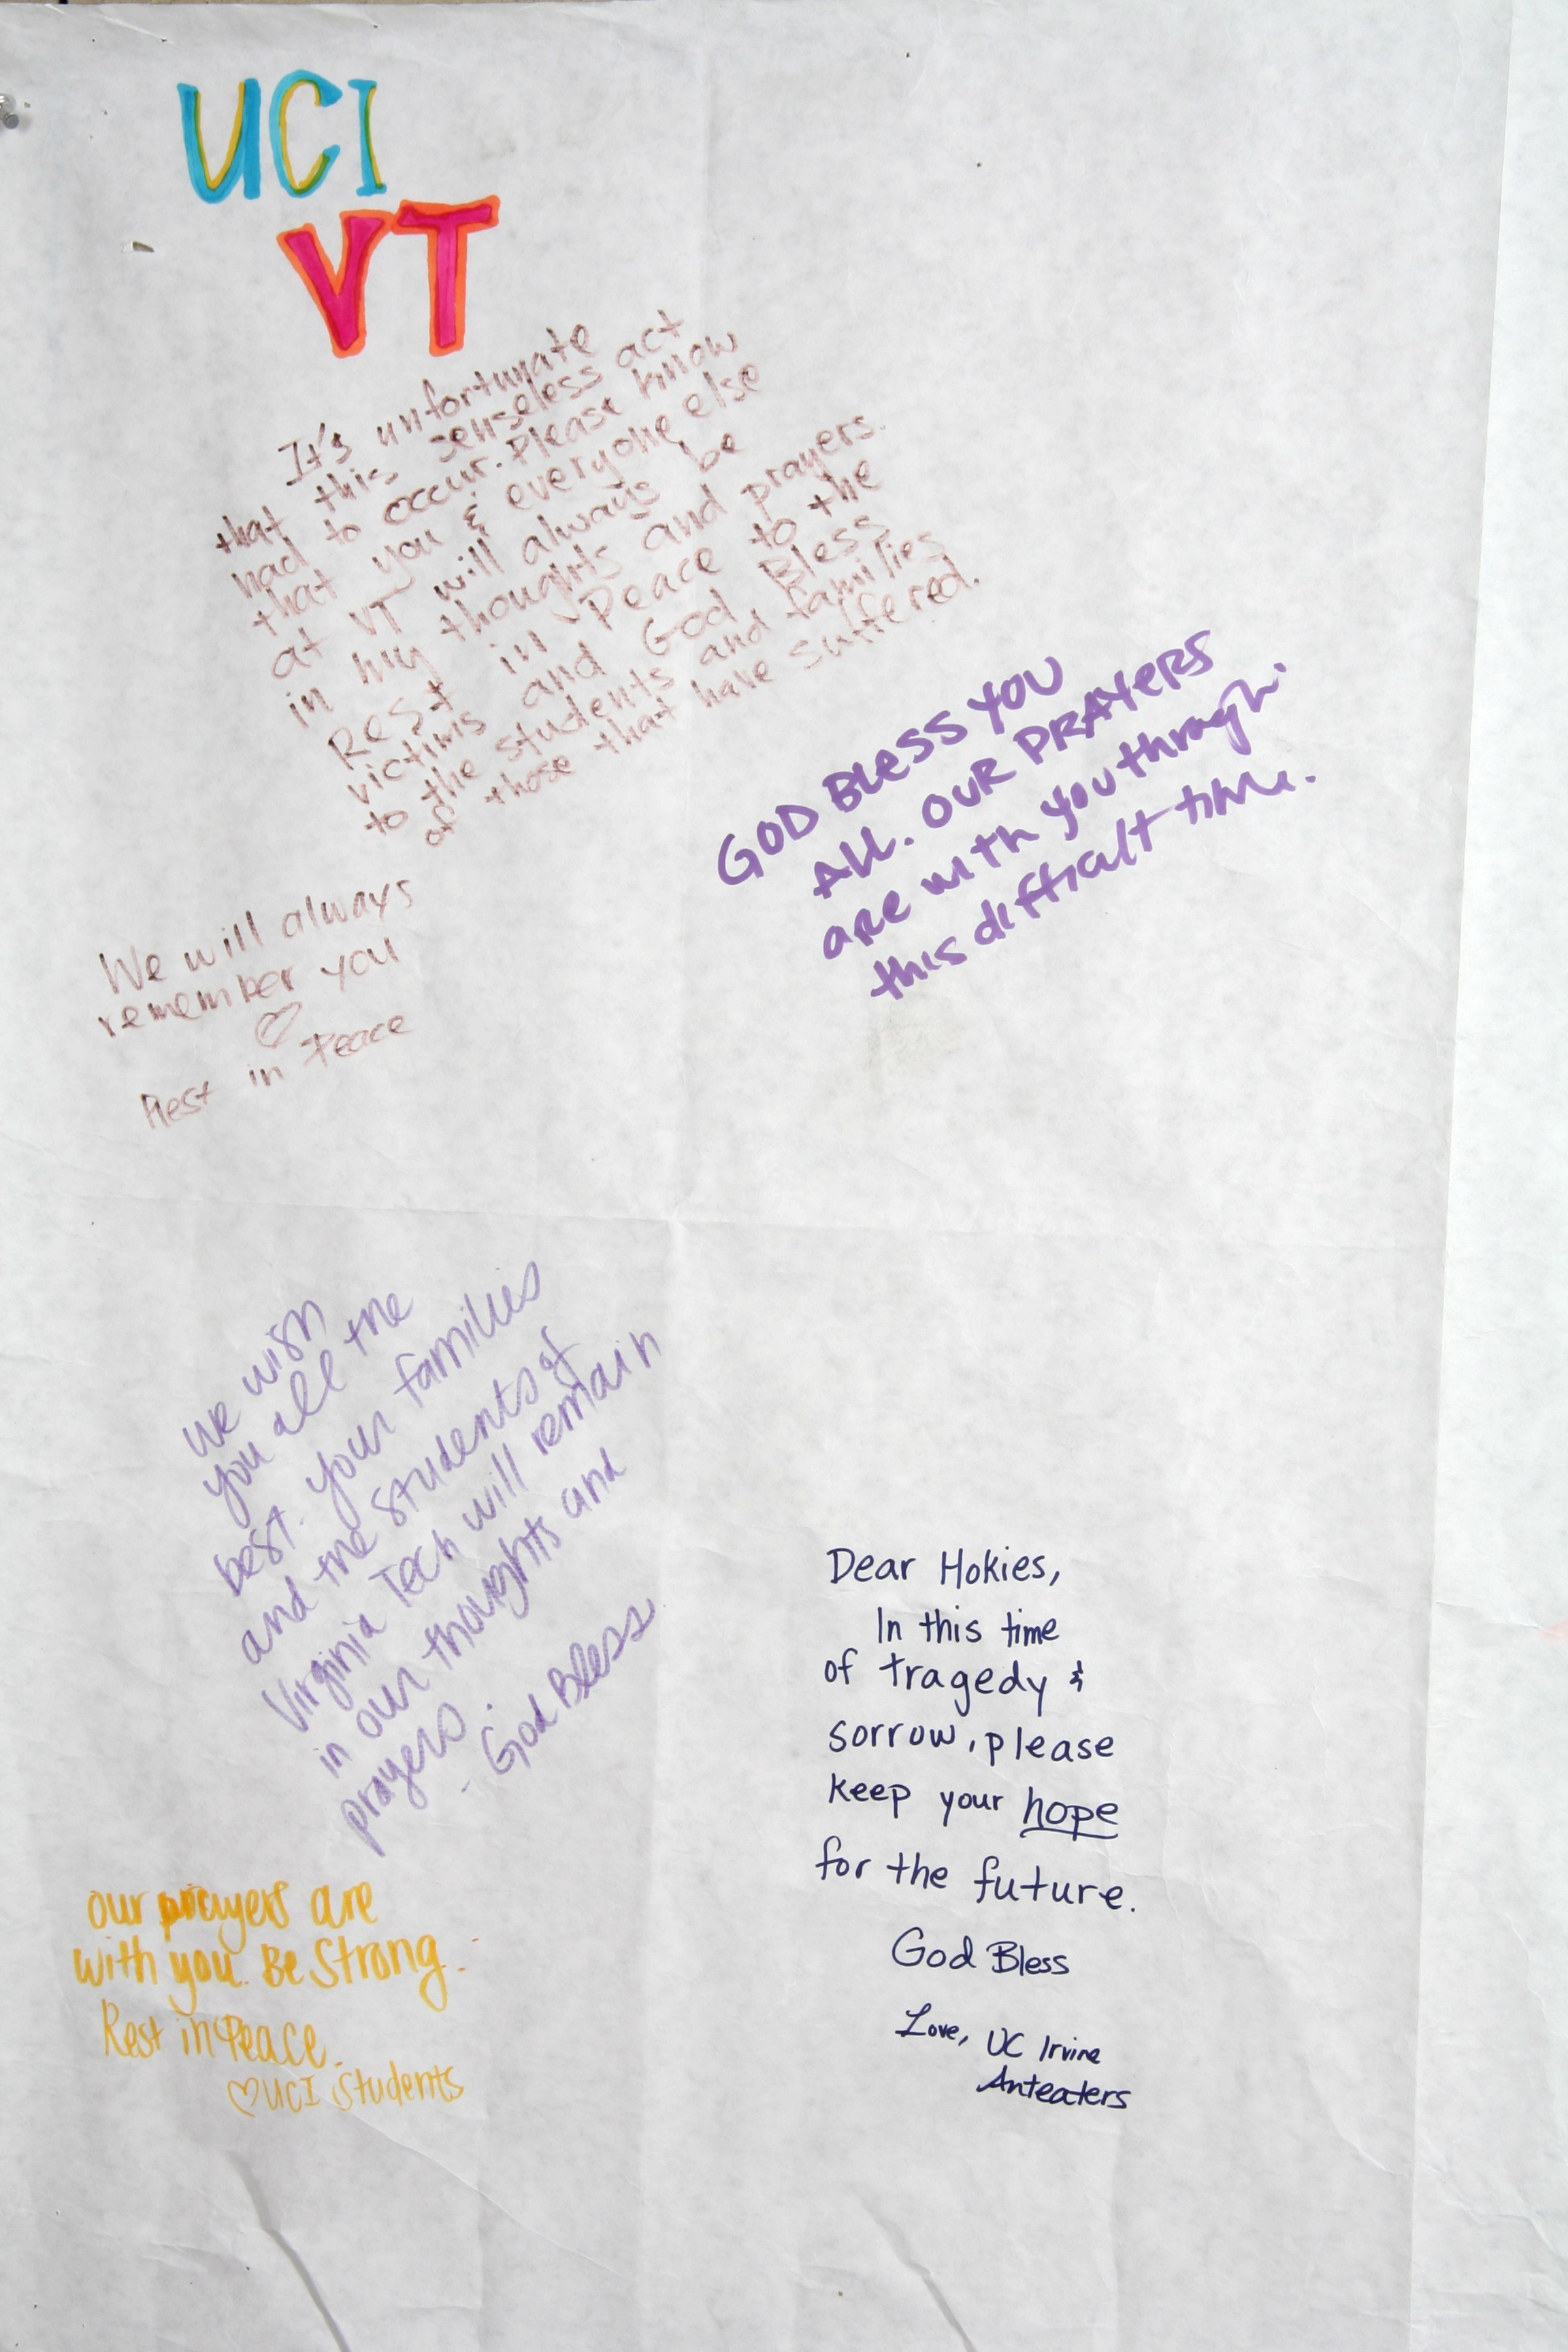 UCI
VT
It's unfortunate
that this senseless act
had to occur. Please know
that you & everyone else
at VT will always be
in my thoughts and prayers.
Rest in Peace to the
victims and God Bless
to the students and families
of those that have suffered.
GOD BLESS YOU
ALL. OUR PRAYERS
are with you through
this difficult time.
We will always
remember you
♡
Rest in Peace
We wish
you all the
best. Your families
and the students of
Virginia Tech will remain
in our thoughts and
prayers.
- God Bless
Dear Hokies,
In this time
of tragedy &
sorrow, please
keep your hope
for the future.
God Bless
Love, UC Irvine
Anteaters
our prayers are
with you. Be Strong.
Rest in Peace.
♡ UCI Students